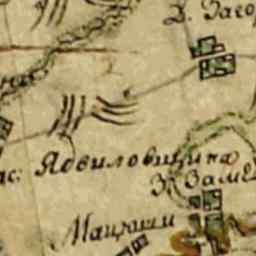 Д. Заго
ас. Яовиловщина
З. Заме
Мацюши